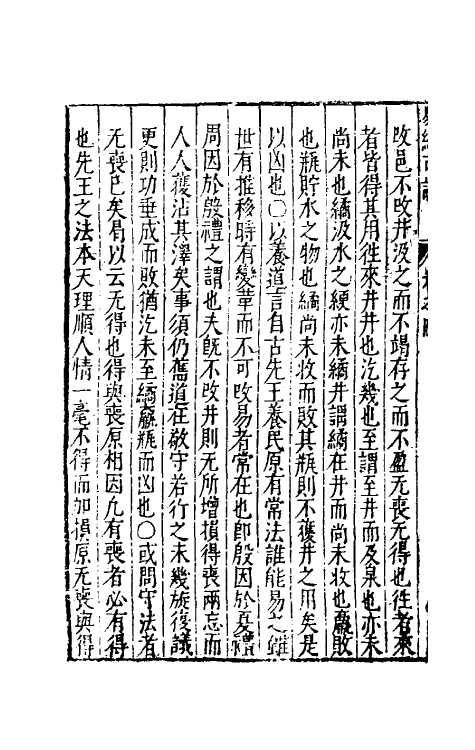 改邑不改井汲之而不竭存之而不盈无喪无得也徃者來
者皆得其用徃來井井也汔幾也至謂至井而及泉也亦未
尚未也繘汲水之綆亦未繘井謂繘在井而尚未收也羸敗
也瓶貯水之物也繘尚未收而敗其瓶則不獲井之用矣是
以凶也○以養道言自古先王養民原有常法誰能易之雖
世有推移時有變革而不可改易者常在也卽殷因於夏禮
周因於殷禮之謂也夫旣不改井則无所增損得喪兩忘而
人人獲沾其澤矣事須仍舊道在敬守若行之未幾旋復議
更則功垂成而敗猶汔未至繘羸瓶而凶也○或問守法者
无喪已矣曷以云无得也得與喪原相因凢有喪者必有得
也先王之法本天理順人情一毫不得而加損原无喪與得